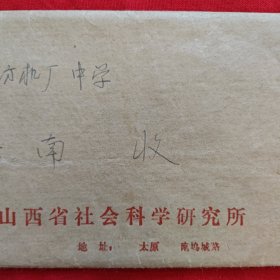 机厂中学
南 收
山西省社会科学研究所
地址: 太原 南坞城路